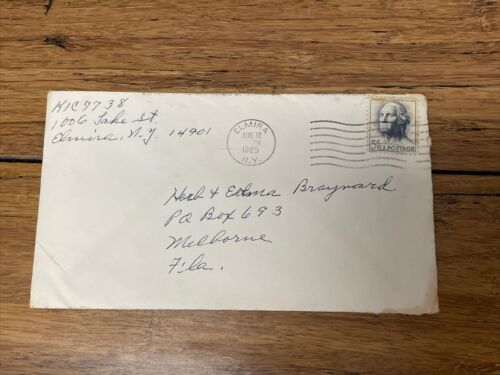 K1C7738
1006 Lake St.
Elmira, N.Y. 14901
ELMIRA
AUG 12
PM
1965
N.Y.
5¢ U.S. POSTAGE
Herb & Edma Braynard
PO Box 693
Melborne
Fla.